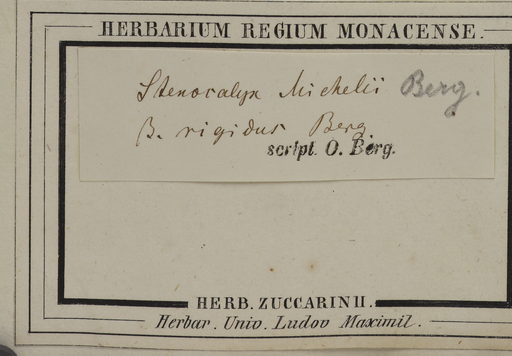 HERBARIUM REGIUM MONACENSE.
Stenocalyx Michelii Berg.
β. rigidus Berg
script. O. Berg.
HERB. ZUCCARINII.
Herbar. Univ. Ludov Maximil.